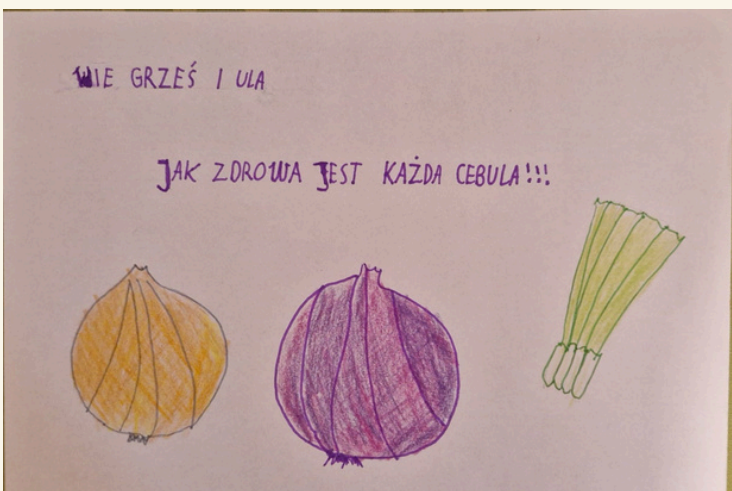 WIE GRZEŚ I ULA
JAK ZDROWA JEST KAŻDA CEBULA!!!